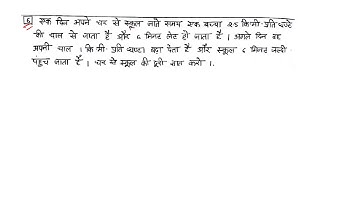 6. एक दिन अपने घर से स्कूल जाते समय एक बच्चा 2.5 कि.मी. प्रति घण्टे
की चाल से जाता है और 6 मिनट लेट हो जाता है । अगले दिन वह
अपनी चाल 1 कि.मी. प्रति घण्टा बढ़ा देता है और स्कूल 6 मिनट जल्दी
पहुंच जाता है । घर से स्कूल की दूरी ज्ञात करो ।